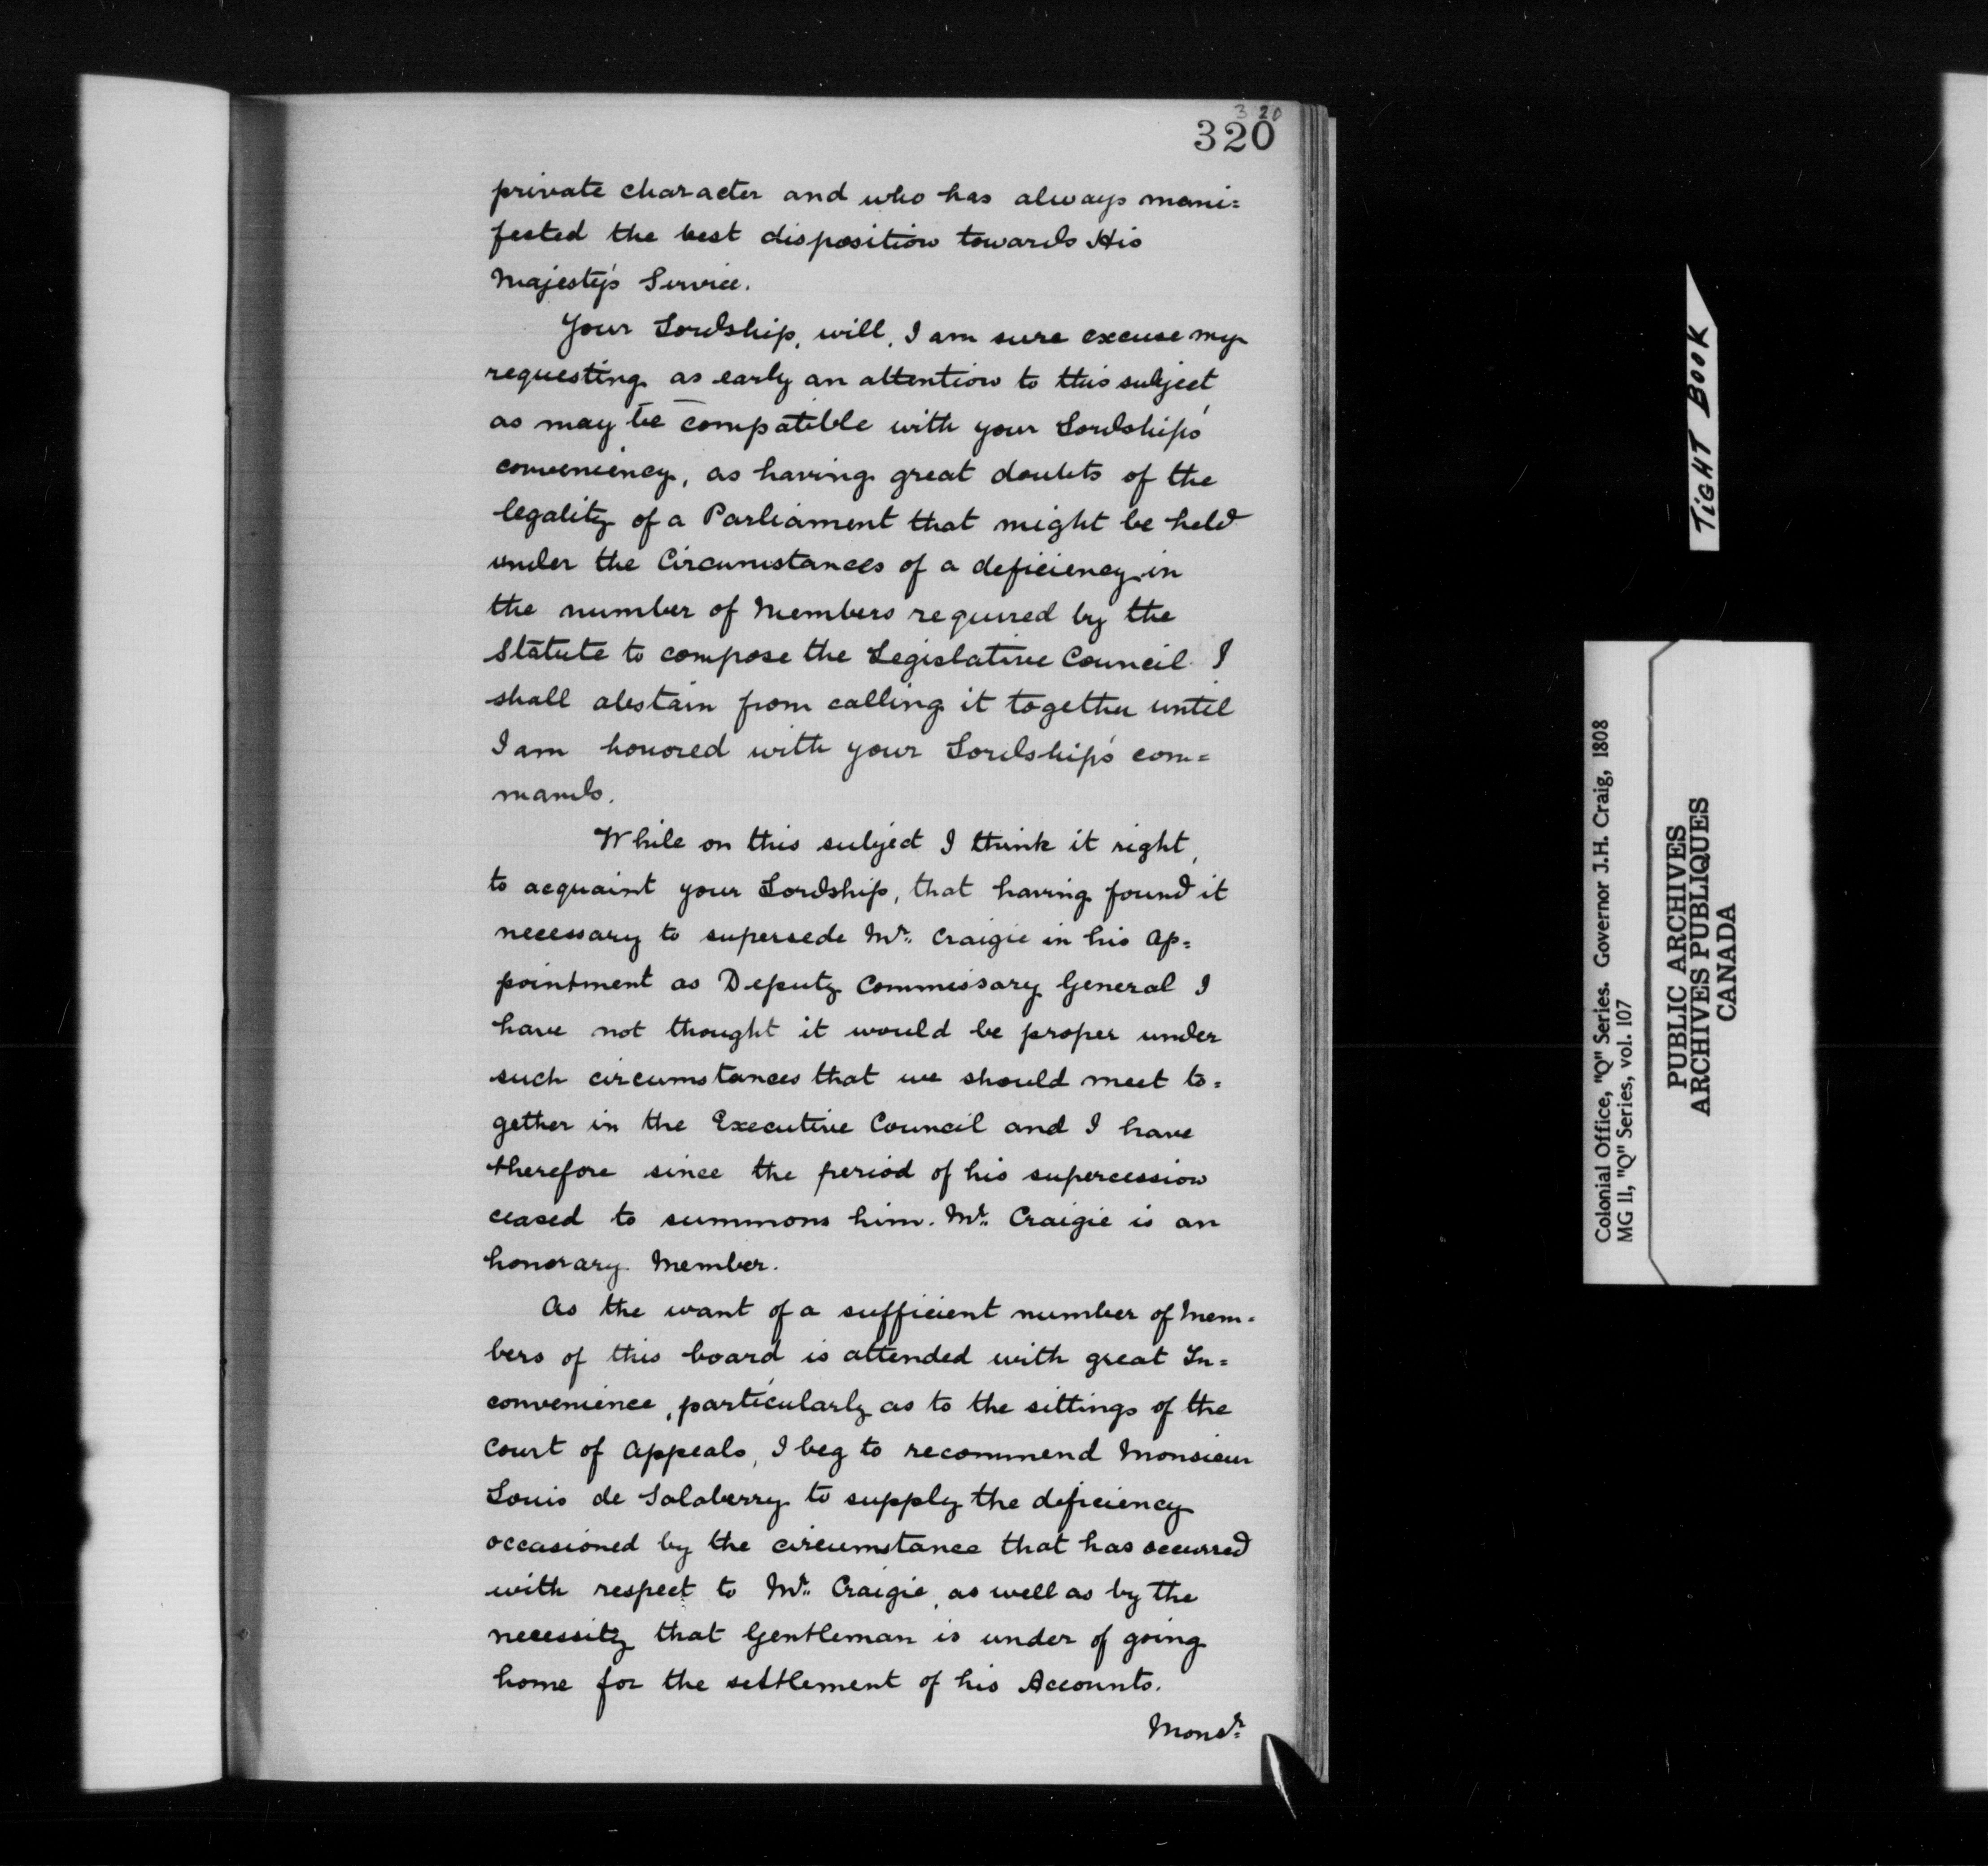 320
320
private character and who has always mani=
fested the best disposition towards His
Majesty's Service.
Your Lordship, will, I am sure excuse my
requesting as early an attention to this subject
as may be compatible with your Lordship's
conveniency, as having great doubts of the
legality of a Parliament that might be held
under the Circumstances of a deficiency in
the number of Members required by the
Statute to compose the Legislative Council I
shall abstain from calling it together until
I am honored with your Lordship's com=
mands.
While on this subject I think it right,
to acquaint your Lordship, that having found it
necessary to supersede Mr. Craigie in his Ap=
pointment as Deputy Commissary General I
have not thought it would be proper under
such circumstances that we should meet to=
gether in the Executive Council and I have
therefore since the period of his supercession
ceased to summons him. Mr. Craigie is an
honorary Member.
As the want of a sufficient number of Mem=
bers of this board is attended with great In=
convenience, particularly as to the sittings of the
Court of Appeals, I beg to recommend Monsieur
Louis de Salaberry to supply the deficiency
occasioned by the circumstance that has occurred
with respect to Mr. Craigie, as well as by the
necessity that Gentleman is under of going
home for the settlement of his Accounts.
Monsr.
TIGHT BOOK
Colonial Office, "Q" Series. Governor J.H. Craig, 1808
MG 11, "Q" Series, vol. 107
PUBLIC ARCHIVES
ARCHIVES PUBLIQUES
CANADA